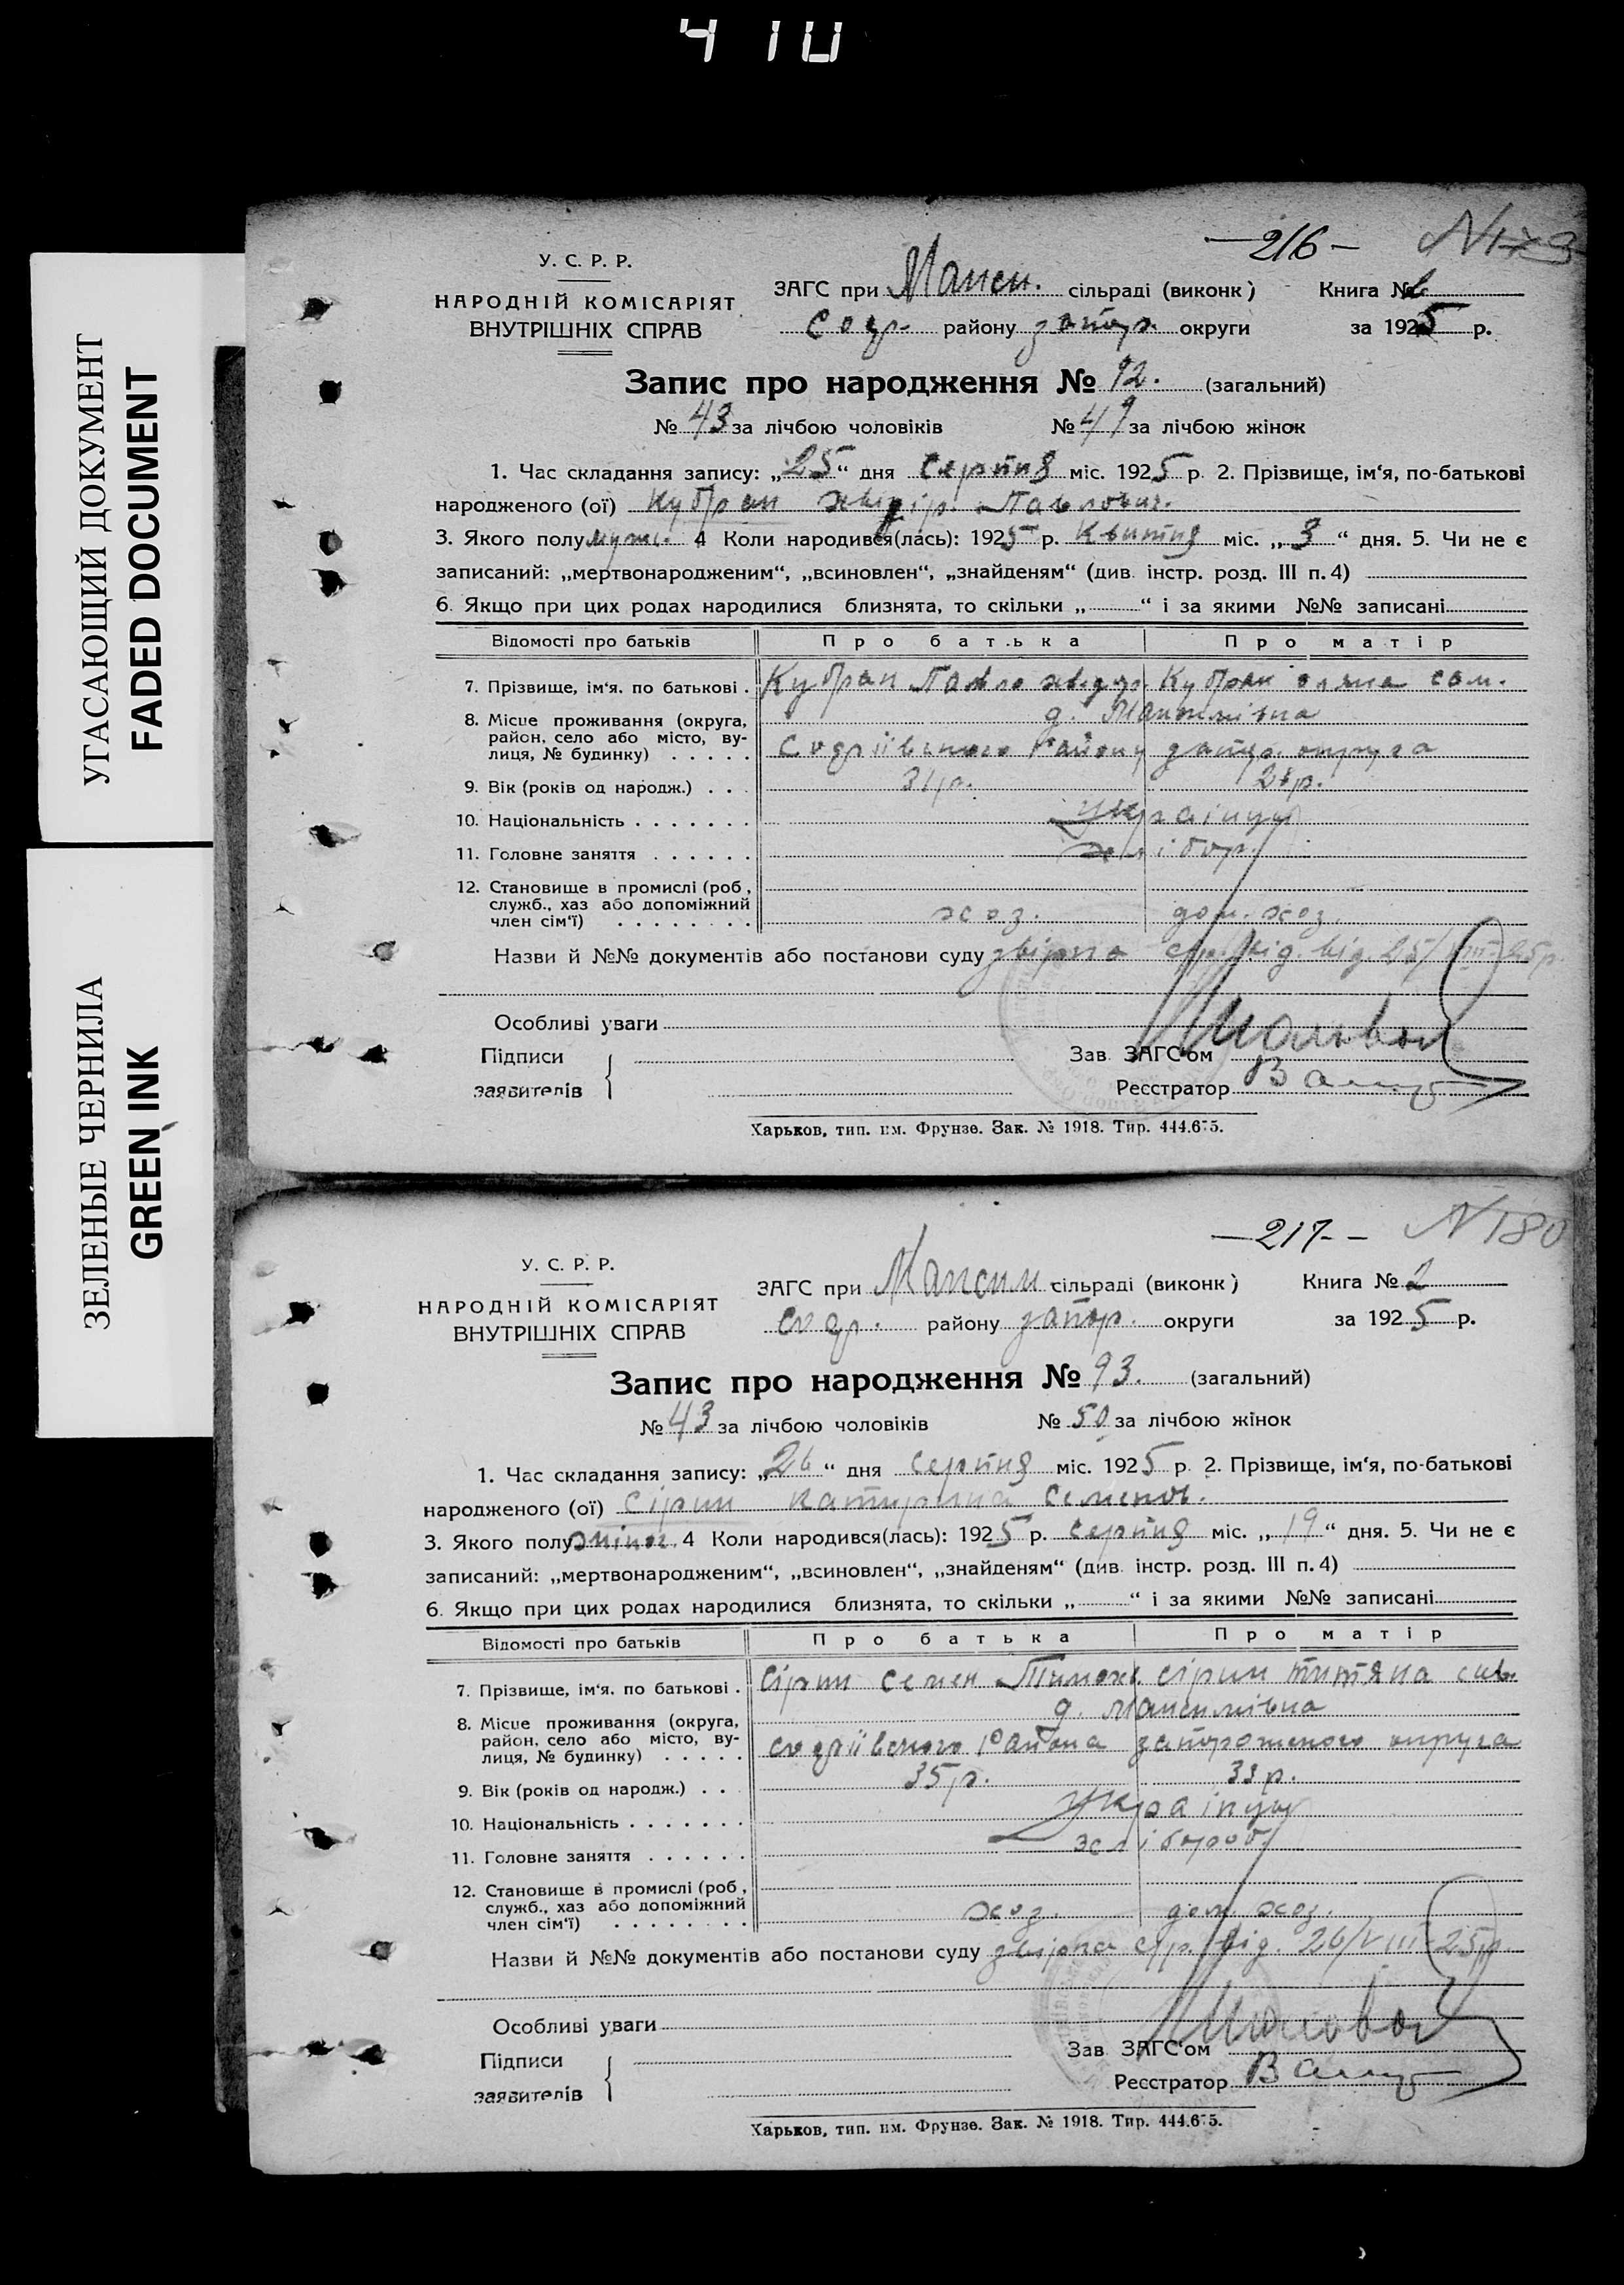 410
УГАСАЮЩИЙ ДОКУМЕНТ
FADED DOCUMENT
ЗЕЛЕНЫЕ ЧЕРНИЛА
GREEN INK
—216— N 179
У. С. Р. Р.
НАРОДНІЙ КОМІСАРІЯТ
ВНУТРІШНІХ СПРАВ
ЗАГС при Макси. сільраді (виконк) Книга №
Софі. району запор. округи за 1925 р.
Запис про народження № 92. (загальний)
№ 43 за лічбою чоловіків № 49 за лічбою жінок
1. Час складання запису: „25“ дня Серпня міс. 1925 р. 2. Прізвище, ім‘я, по-батькові
народженого (ої) Кубрак Хведір Павлович.
3. Якого полу муж. 4 Коли народився(лась): 1925 р. Квитня міс. „3“ дня. 5. Чи не є
записаний: „мертвонародженим“, „всиновлен“, „знайденям“ (див. інстр. розд. III п. 4)
6. Якщо при цих родах народилися близнята, то скільки „ “ і за якими №№ записані
Відомості про батьків Про батька Про матір
7. Прізвище, ім‘я. по батькові . Кубрак Павло хведор. Кубрак оляна сам.
8. Місце проживання (округа, д. Максимівка
район, село або місто, ву-
лиця, № будинку) . . . . . Софіївського Району запор. округа
9. Вік (років од народж.) . . . 31р. р.
10. Національність . . . . . . . Українці
11. Головне заняття . . . . . . хлібор.
12. Становище в промислі (роб.,
служб., хаз або допоміжний
член сім‘ї) . . . . . . . . хоз. дом. хоз.
Назви й №№ документів або постанови суду звірка від. 25/VIII-25р.
Особливі уваги
Підписи
заявителів
Зав. ЗАГС‘ом
Реєстратор
Харьков, тип. им. Фрунзе. Зак. № 1918. Тир. 444.675.
—217-— N 180
У. С. Р. Р.
НАРОДНІЙ КОМІСАРІЯТ
ВНУТРІШНІХ СПРАВ
ЗАГС при Максим сільраді (виконк) Книга № 2
Софі. району запор. округи за 1925 р.
Запис про народження № 93. (загальний)
№ 43 за лічбою чоловіків № 50 за лічбою жінок
1. Час складання запису: „26“ дня Серпня міс. 1925 р. 2. Прізвище, ім‘я, по-батькові
народженого (ої) Сірик Катирина Семенов.
3. Якого полу жіноч. 4 Коли народився(лась): 1925 р. Серпня міс. „19“ дня. 5. Чи не є
записаний: „мертвонародженим“, „всиновлен“, „знайденям“ (див. інстр. розд. III п. 4)
6. Якщо при цих родах народилися близнята, то скільки „ “ і за якими №№ записані
Відомості про батьків Про батька Про матір
7. Прізвище, ім‘я. по батькові . Сірик Семен Тимох. сірик титяна
8. Місце проживання (округа, д. Максимівка
район, село або місто, ву-
лиця, № будинку) . . . . . Софіївского Району запорожского округа
9. Вік (років од народж.) . . . 35р. 33р.
10. Національність . . . . . . . Українці
11. Головне заняття . . . . . . хлібороб.
12. Становище в промислі (роб.,
служб., хаз або допоміжний
член сім‘ї) . . . . . . . . хоз. дом. хоз.
Назви й №№ документів або постанови суду звірка від. 26/VIII-25р.
Особливі уваги
Підписи
заявителів
Зав. ЗАГС‘ом
Реєстратор
Харьков, тип. им. Фрунзе. Зак. № 1918. Тир. 444.675.